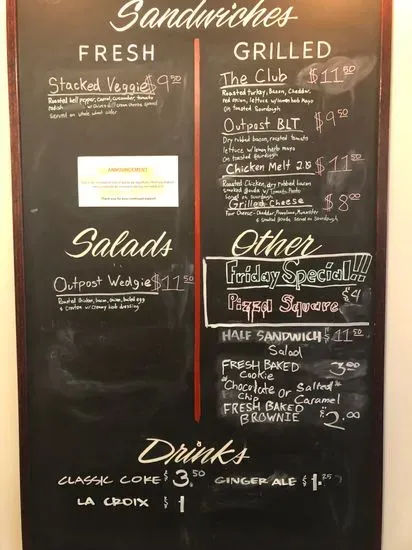 Sandwiches
FRESH
Stacked Veggie $9.50
Roasted bell pepper, carrot, cucumber,
radish w/ chive cream cheese spread
Served on whole wheat
ANNOUNCEMENT
Thank you for your continued support!
GRILLED
The Club $11.50
Roasted turkey, Bacon, Cheddar,
red onion, lettuce w/ lemon herb mayo
on toasted Sourdough
Outpost BLT $9.50
Dry rubbed bacon, roasted tomato
lettuce w/ lemon herb mayo
on toasted Sourdough
Chicken Melt 2.0 $11.50
Roasted Chicken, dry rubbed bacon
smoked gouda w/ Tomato Pesto
Served on sourdough
Grilled Cheese $8.00
Four Cheese - Cheddar, Provolone, Muenster
& smoked gouda served on Sourdough
Salads
Outpost Wedgie $11.50
Roasted chicken, bacon, onion, boiled egg
& crouton w/ creamy herb dressing
Other
Friday Special!!
Pizza Square $4
HALF SANDWICH & $11.50
Salad
FRESH BAKED 3.00
Cookie
Chocolate Chip or Salted Caramel
FRESH BAKED
BROWNIE $2.00
Drinks
CLASSIC COKE $3.50
GINGER ALE $1.25
LA CROIX $1